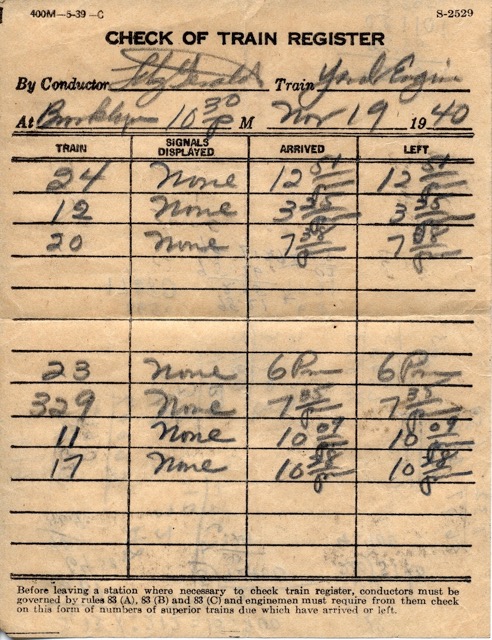 400M—5-39—C S-2529
CHECK OF TRAIN REGISTER
By Conductor Fitzgerald Train Yard Engine
At Brooklyn 10 30 P M Nov 19 1940
TRAIN SIGNALS DISPLAYED ARRIVED LEFT
24 None 12 51 P 12 51 P
12 None 3 P 3 P
20 None 7 38 P 7 38 P
23 None 6 Pm 6 Pm
329 None 7 35 P 7 35 P
11 None 10 09 P 10 09 P
17 None 10 18 P 10 18 P
Before leaving a station where necessary to check train register, conductors must be
governed by rules 83 (A), 83 (B) and 83 (C) and enginemen must require from them check
on this form of numbers of superior trains due which have arrived or left.